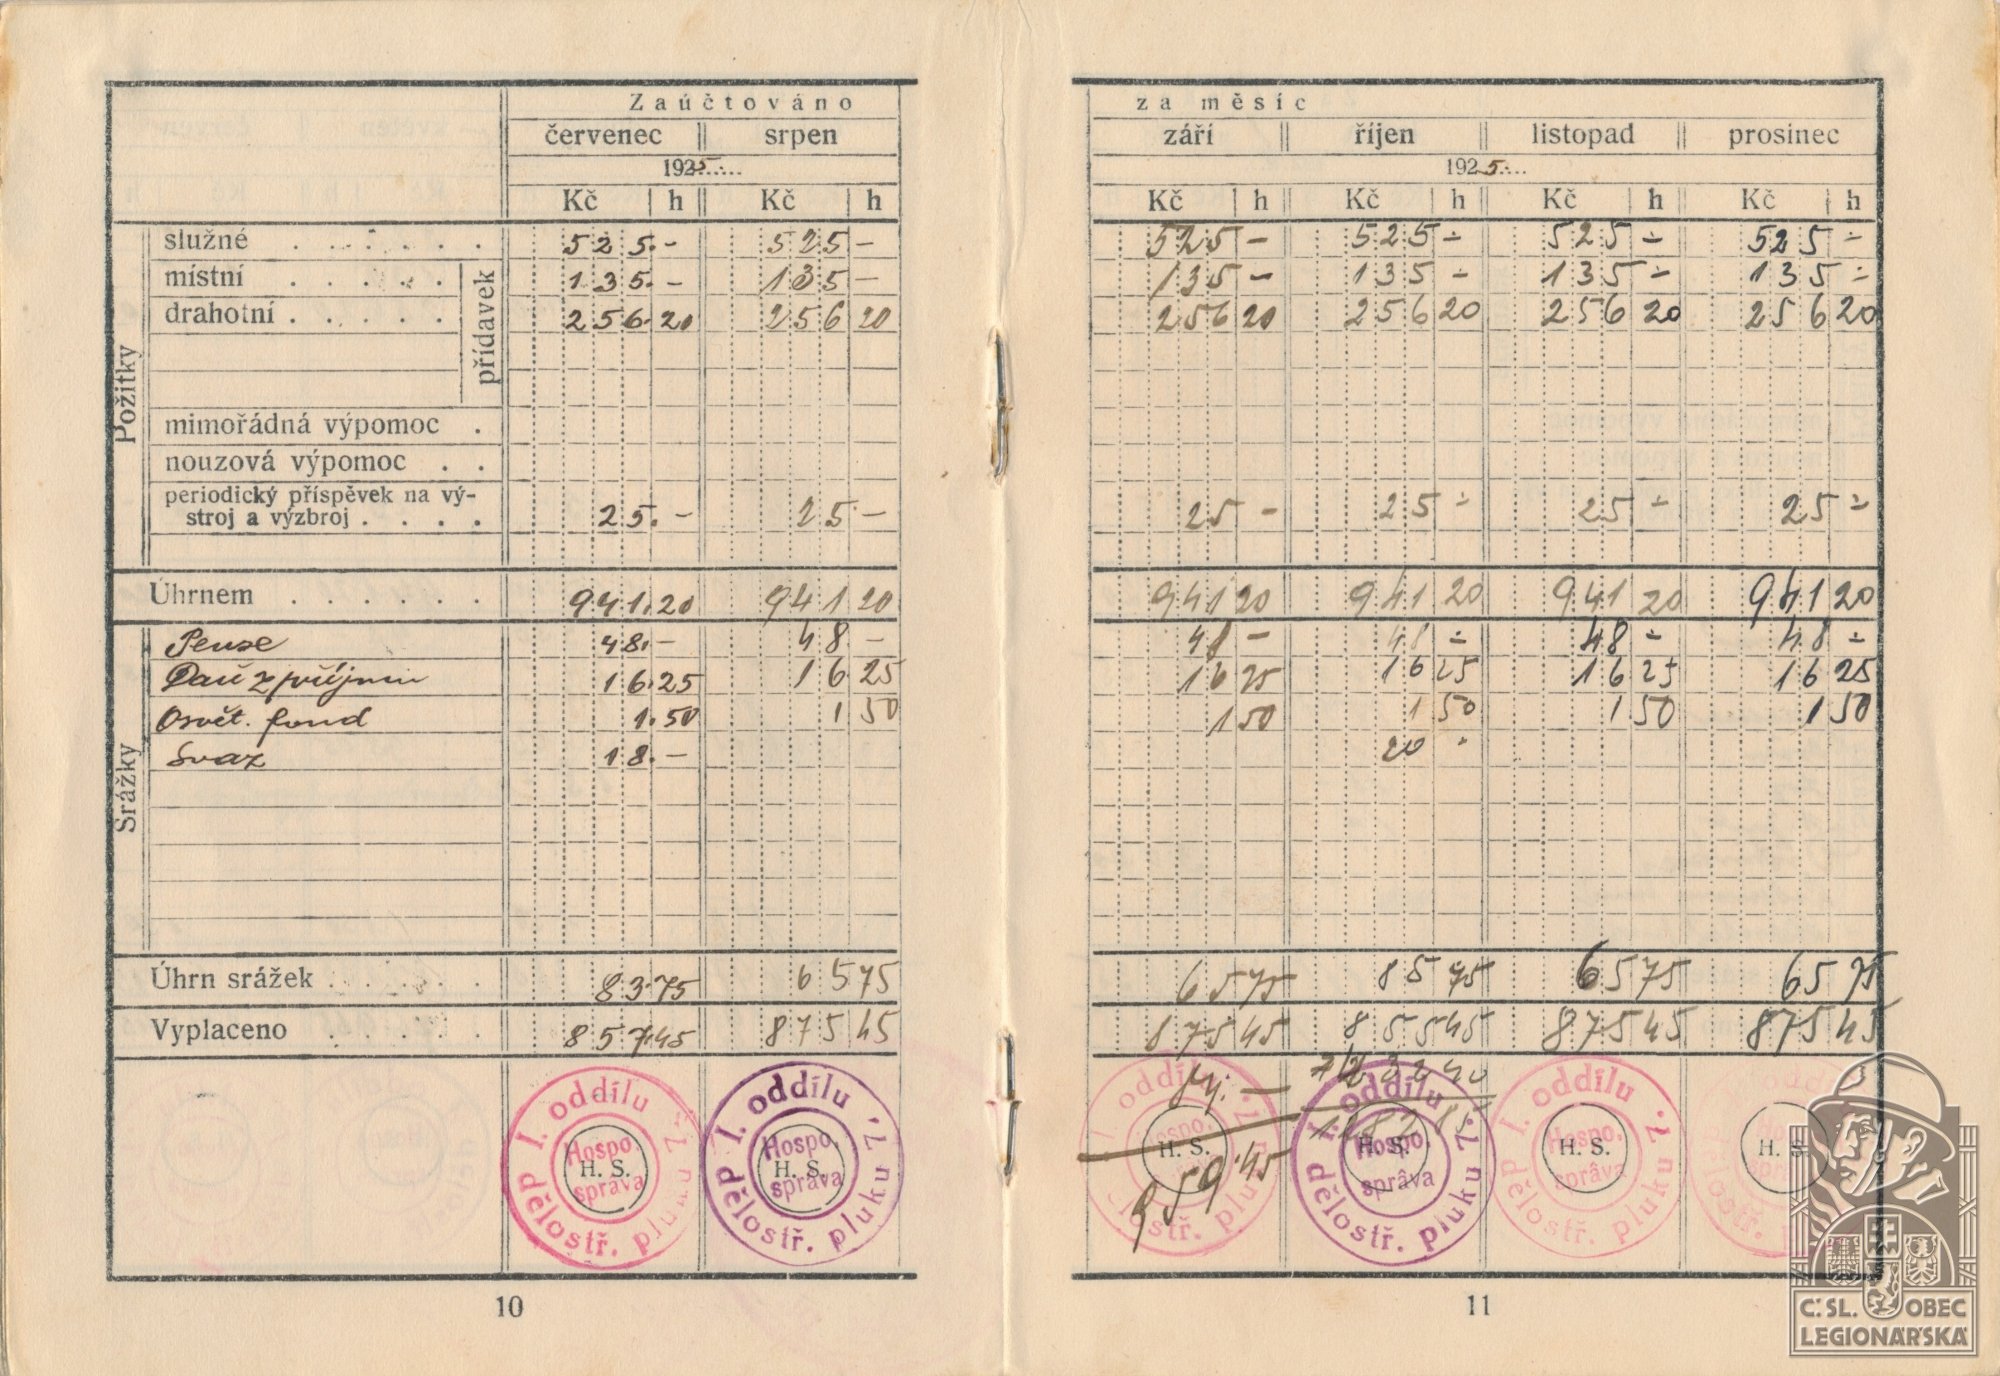 Zaúčtováno
červenec srpen
1925
Kč h Kč h
služné 525.- 525-
místní 135.- 135-
drahotní 256.20 256 20
přídavek
mimořádná výpomoc
nouzová výpomoc
periodický příspěvek na vý-
stroj a výzbroj 25.- 25.-
Požitky
Úhrnem 941.20 941 20
Pense 48.- 48-
Daň z příjmu 16.25 16 25
Osvět. fond 1.50 1 50
Svaz 18.-
Srážky
Úhrn srážek 83.75 65 75
Vyplaceno 857.45 875 45
I. oddílu dělostř. pluku 7.
Hospo. správa
H. S.
I. oddílu dělostř. pluku 7.
Hospo. správa
H. S.
10
za měsíc
září říjen listopad prosinec
1925
Kč h Kč h Kč h Kč h
525 - 525 ÷ 525 ÷ 525 ÷
135 - 135 - 135 ÷ 135 ÷
256 20 256 20 256 20 256 20
25 - 25 ÷ 25 ÷ 25 ÷
941 20 941 20 941 20 941 20
48 - 48 ÷ 48 ÷ 48 ÷
16 25 16 25 16 25 16 25
1 50 1 50 1 50 1 50
20 -
65 75 85 75 65 75 65 75
875 45 855 45 875 45 875 45
I. oddílu dělostř. pluku 7.
Hospo. správa
H. S.
I. oddílu dělostř. pluku 7.
Hospo. správa
H. S.
I. oddílu dělostř. pluku 7.
Hospo. správa
H. S.
H. S.
11
Č. SL. OBEC
LEGIONÁŘSKÁ